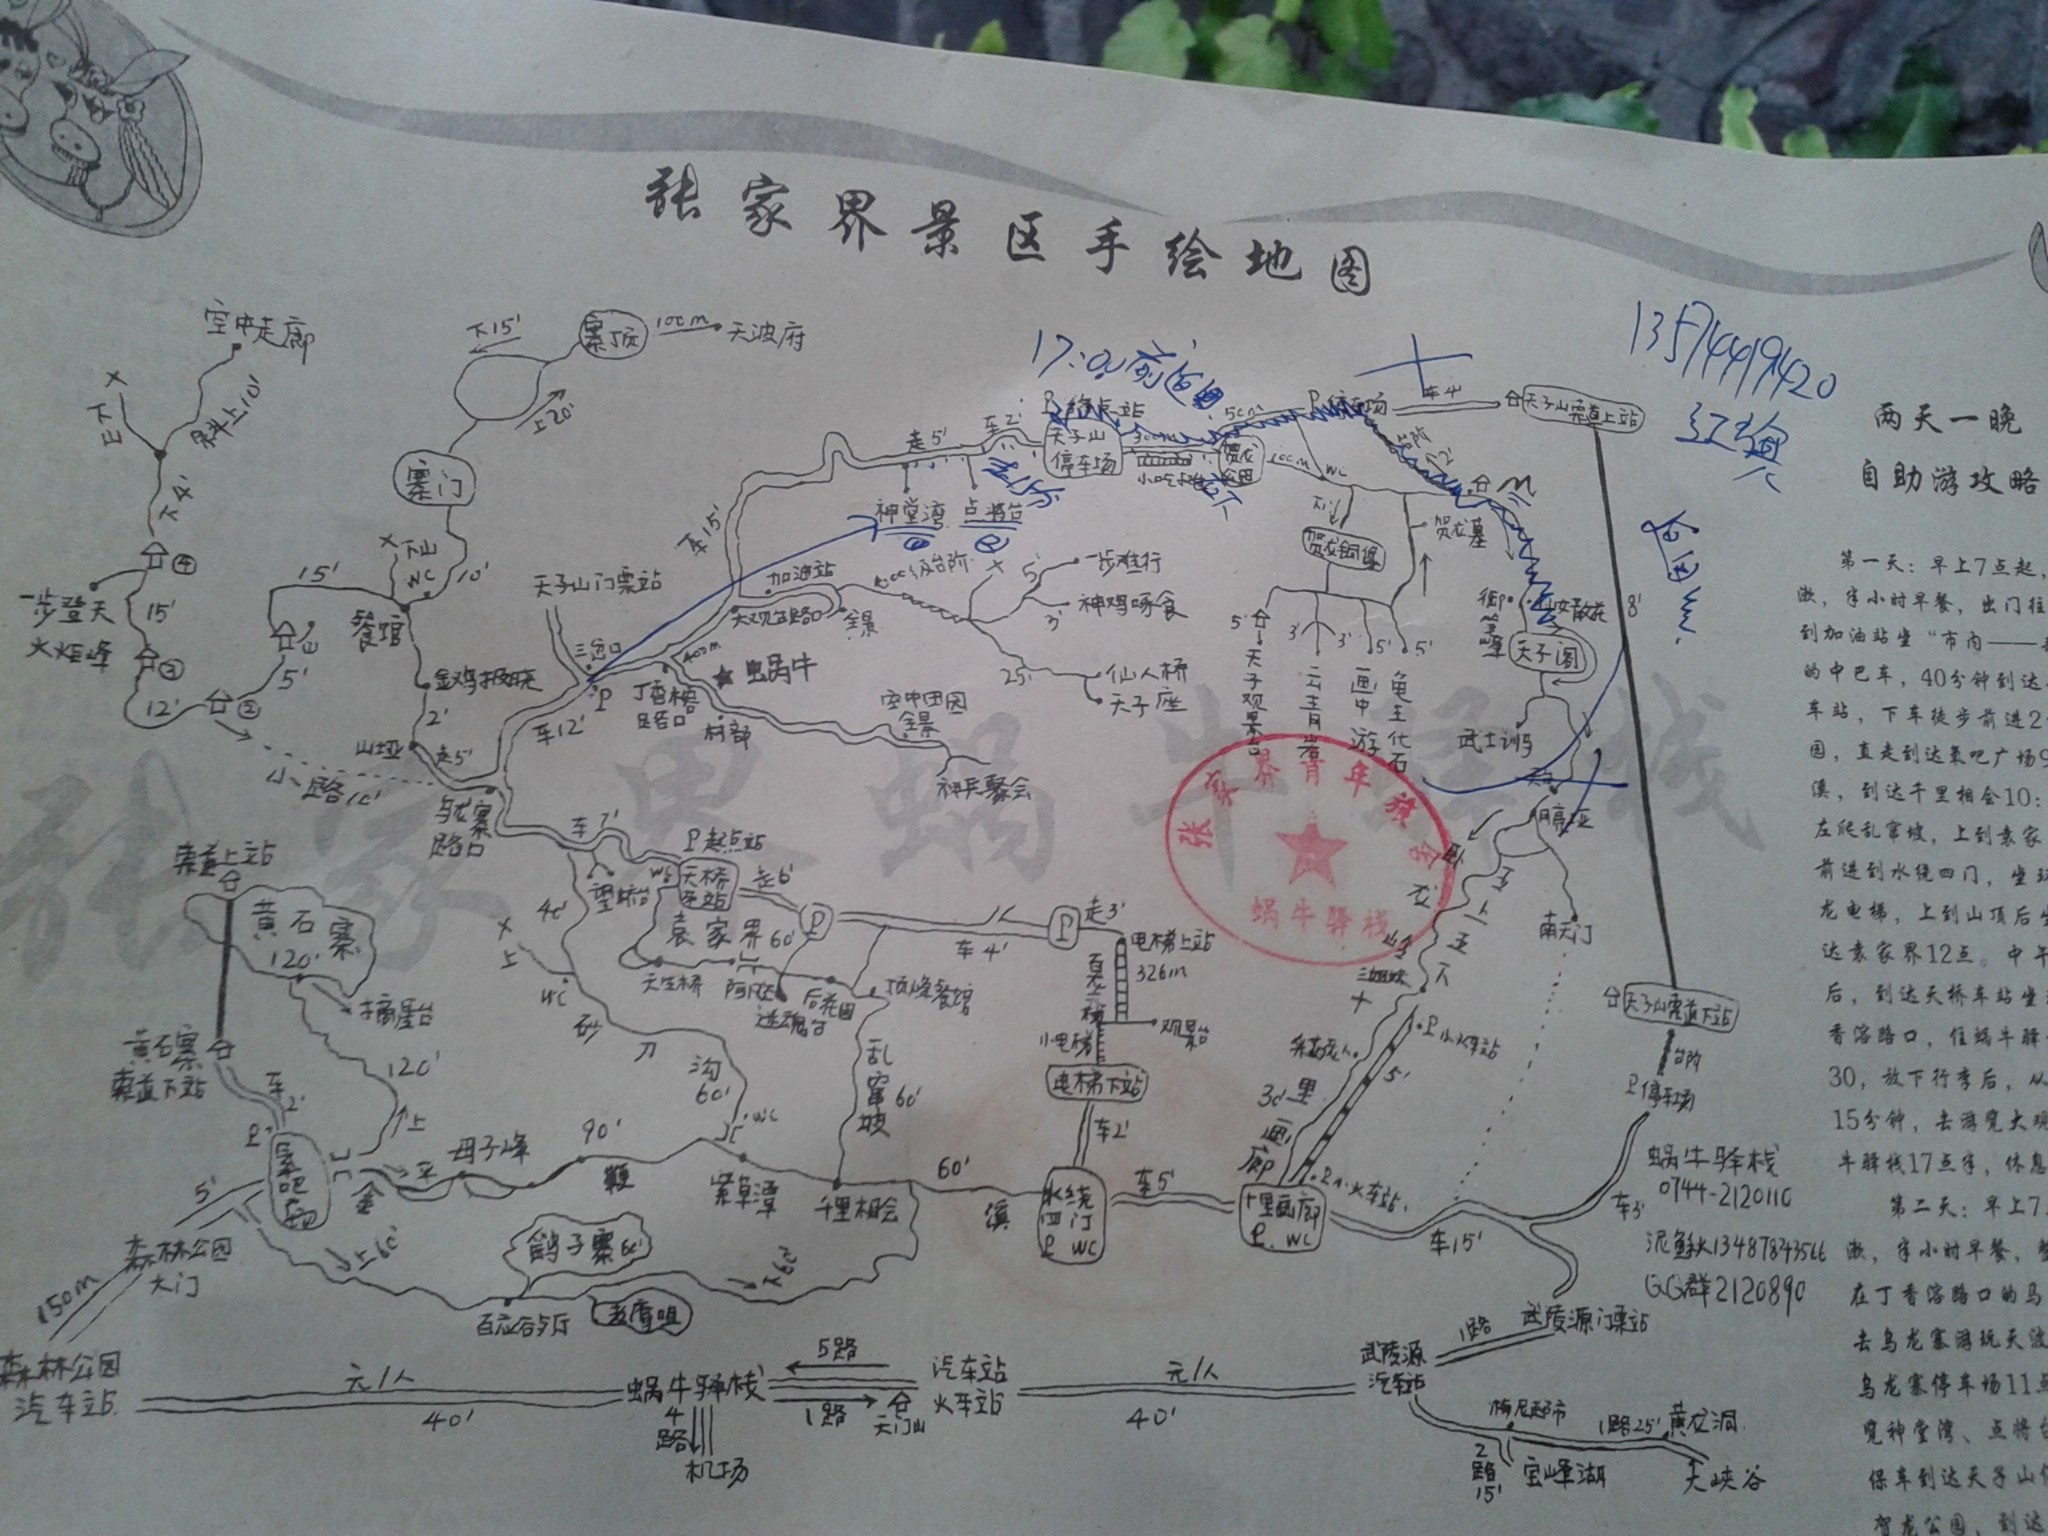 张家界景区手绘地图
空中走廊
下15'
寨顶
100m
天波府
13574419420
17:00前返回
上20'
斜上10'
P 终点站
P 停车场
车4'
天子山索道上站
两天一晚
自助游攻略
寨门
走5'
车2'
天子山
停车场
300m
小吃
贺龙
公园
100m
WC
台阶
下4'
车15'
神堂湾
点将台
贺龙墓
④
下山
WC
10'
天子山门票站
加油站
台阶
一步难行
贺龙铜像
第一天：早上7点起，
漱，半小时早餐，出门往
一步登天
火炬峰
15'
15'
餐馆
三岔口
大观台路口
全景
5'
神鸡啄食
3'
5'
3'
3'
5'
5'
御笔峰
仙女散花
8'
到加油站坐“市内——
天子阁
③
12'
②
5'
金鸡报晓
2'
P
400m
丁香榕
路口
蜗牛
25'
仙人桥
天子座
的中巴车，40分钟到达
车站，下车徒步前进2
山垭
走5'
车12'
村部
空中田园
全景
神兵聚会
天子观景台
云青岩
画中游
龟王化石
武士驯马
园，直走到达氧吧广场9
溪，到达千里相会10：
小路10'
乌龙寨
路口
车7'
P起点站
月亭垭
左爬乱窜坡，上到袁家
索道上站
望桥台
WC
天桥
车站
走6'
P
张家界青年旅舍
蜗牛驿栈
前进到水绕四门，坐环
龙电梯，上到山顶后坐
黄石寨
120'
40'
上
袁家界
60'
车4'
P
走3'
电梯上站
326m
卧龙岭
南天门
达袁家界12点。中午
摘星台
WC
天生桥
迷魂台
后花园
顶峰餐馆
百龙
观景台
三姐妹
天子山索道下站
后，到达天桥车站坐
黄石寨
索道下站
砂刀沟
60'
乱窜坡
60'
小电梯
电梯下站
采药老人
P 小火车站
5'
台阶
P 停车场
香溶路口，住蜗牛驿
30，放下行李后，从
车2'
120'
上
WC
车2'
十里画廊
30'
15分钟，去游览大观
P
氧吧
广场
平
母子峰
90'
金鞭溪
紫草潭
千里相会
60'
水绕
四门
P WC
车5'
十里画廊
P. WC
P.小火车站
车15'
车3'
蜗牛驿栈
0744-2120110
牛驿栈17点半，休息
第二天：早上7
5'
森林公园
大门
上60'
鹞子寨
60'
下60'
泥鳅13487843566
QQ群2120890
漱，半小时早餐，整
在丁香溶路口的马
150m
百丈谷
老鹰咀
武陵源门票站
去乌龙寨游玩天波
森林公园
汽车站
元/人
40'
蜗牛驿栈
5路
1路
天门山
汽车站
火车站
元/人
40'
武陵源
汽车站
1路
乌龙寨停车场11点
4路
机场
梅尼超市
1路25'
黄龙洞
览神堂湾、点将台
2路
15'
宝峰湖
大峡谷
保车到达天子山停
贺龙公园，到达